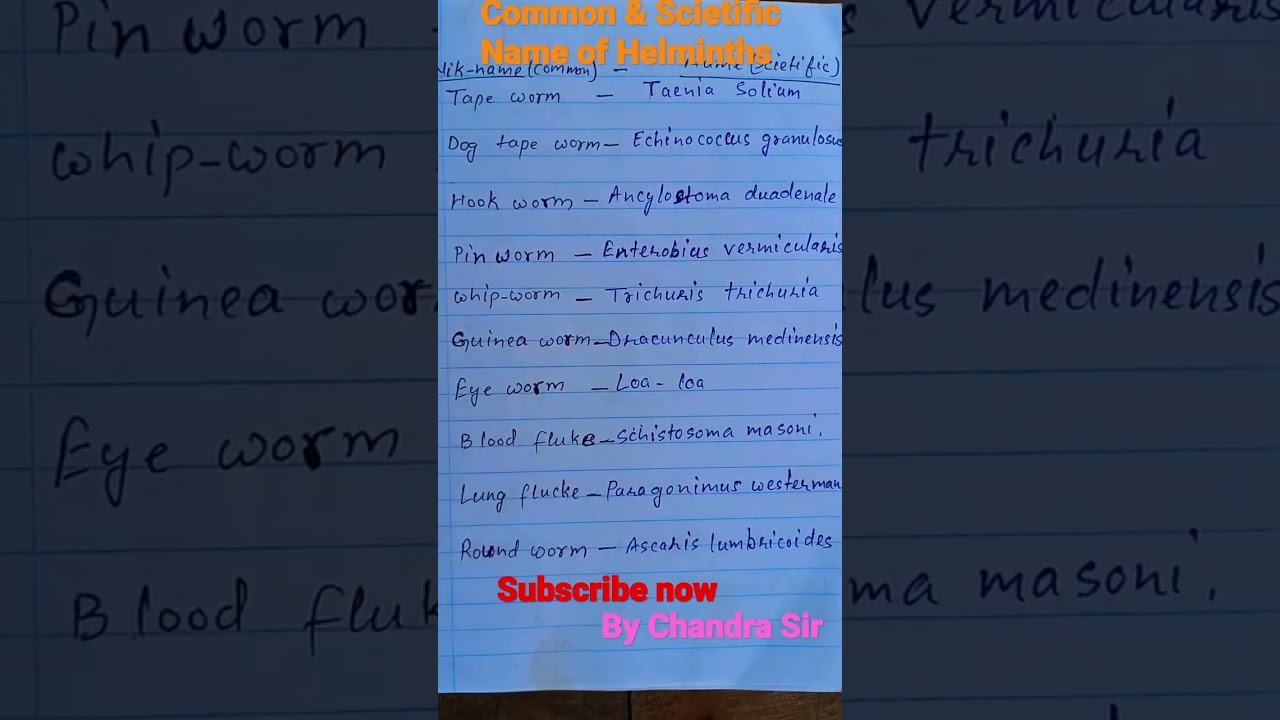 Common & Scietific
Name of Helminths
Nik-name (common) - Name (scietific)
Tape worm - Taenia Solium
Dog tape worm - Echinococcus granulosus
Hook worm - Ancylostoma duadenale
Pin worm - Enterobius vermicularis
whip-worm - Trichuris trichuria
Guinea worm - Dracunculus medinensis
Eye worm - Loa - loa
Blood fluke - Schistosoma masoni.
Lung flucke - Paragonimus westerman
Round worm - Ascaris lumbricoides
Subscribe now
By Chandra Sir
Pin worm
vermicularis
whip-worm
trichuria
Guinea wor
lus medinensis
Eye worm
Blood fluk
ma masoni.